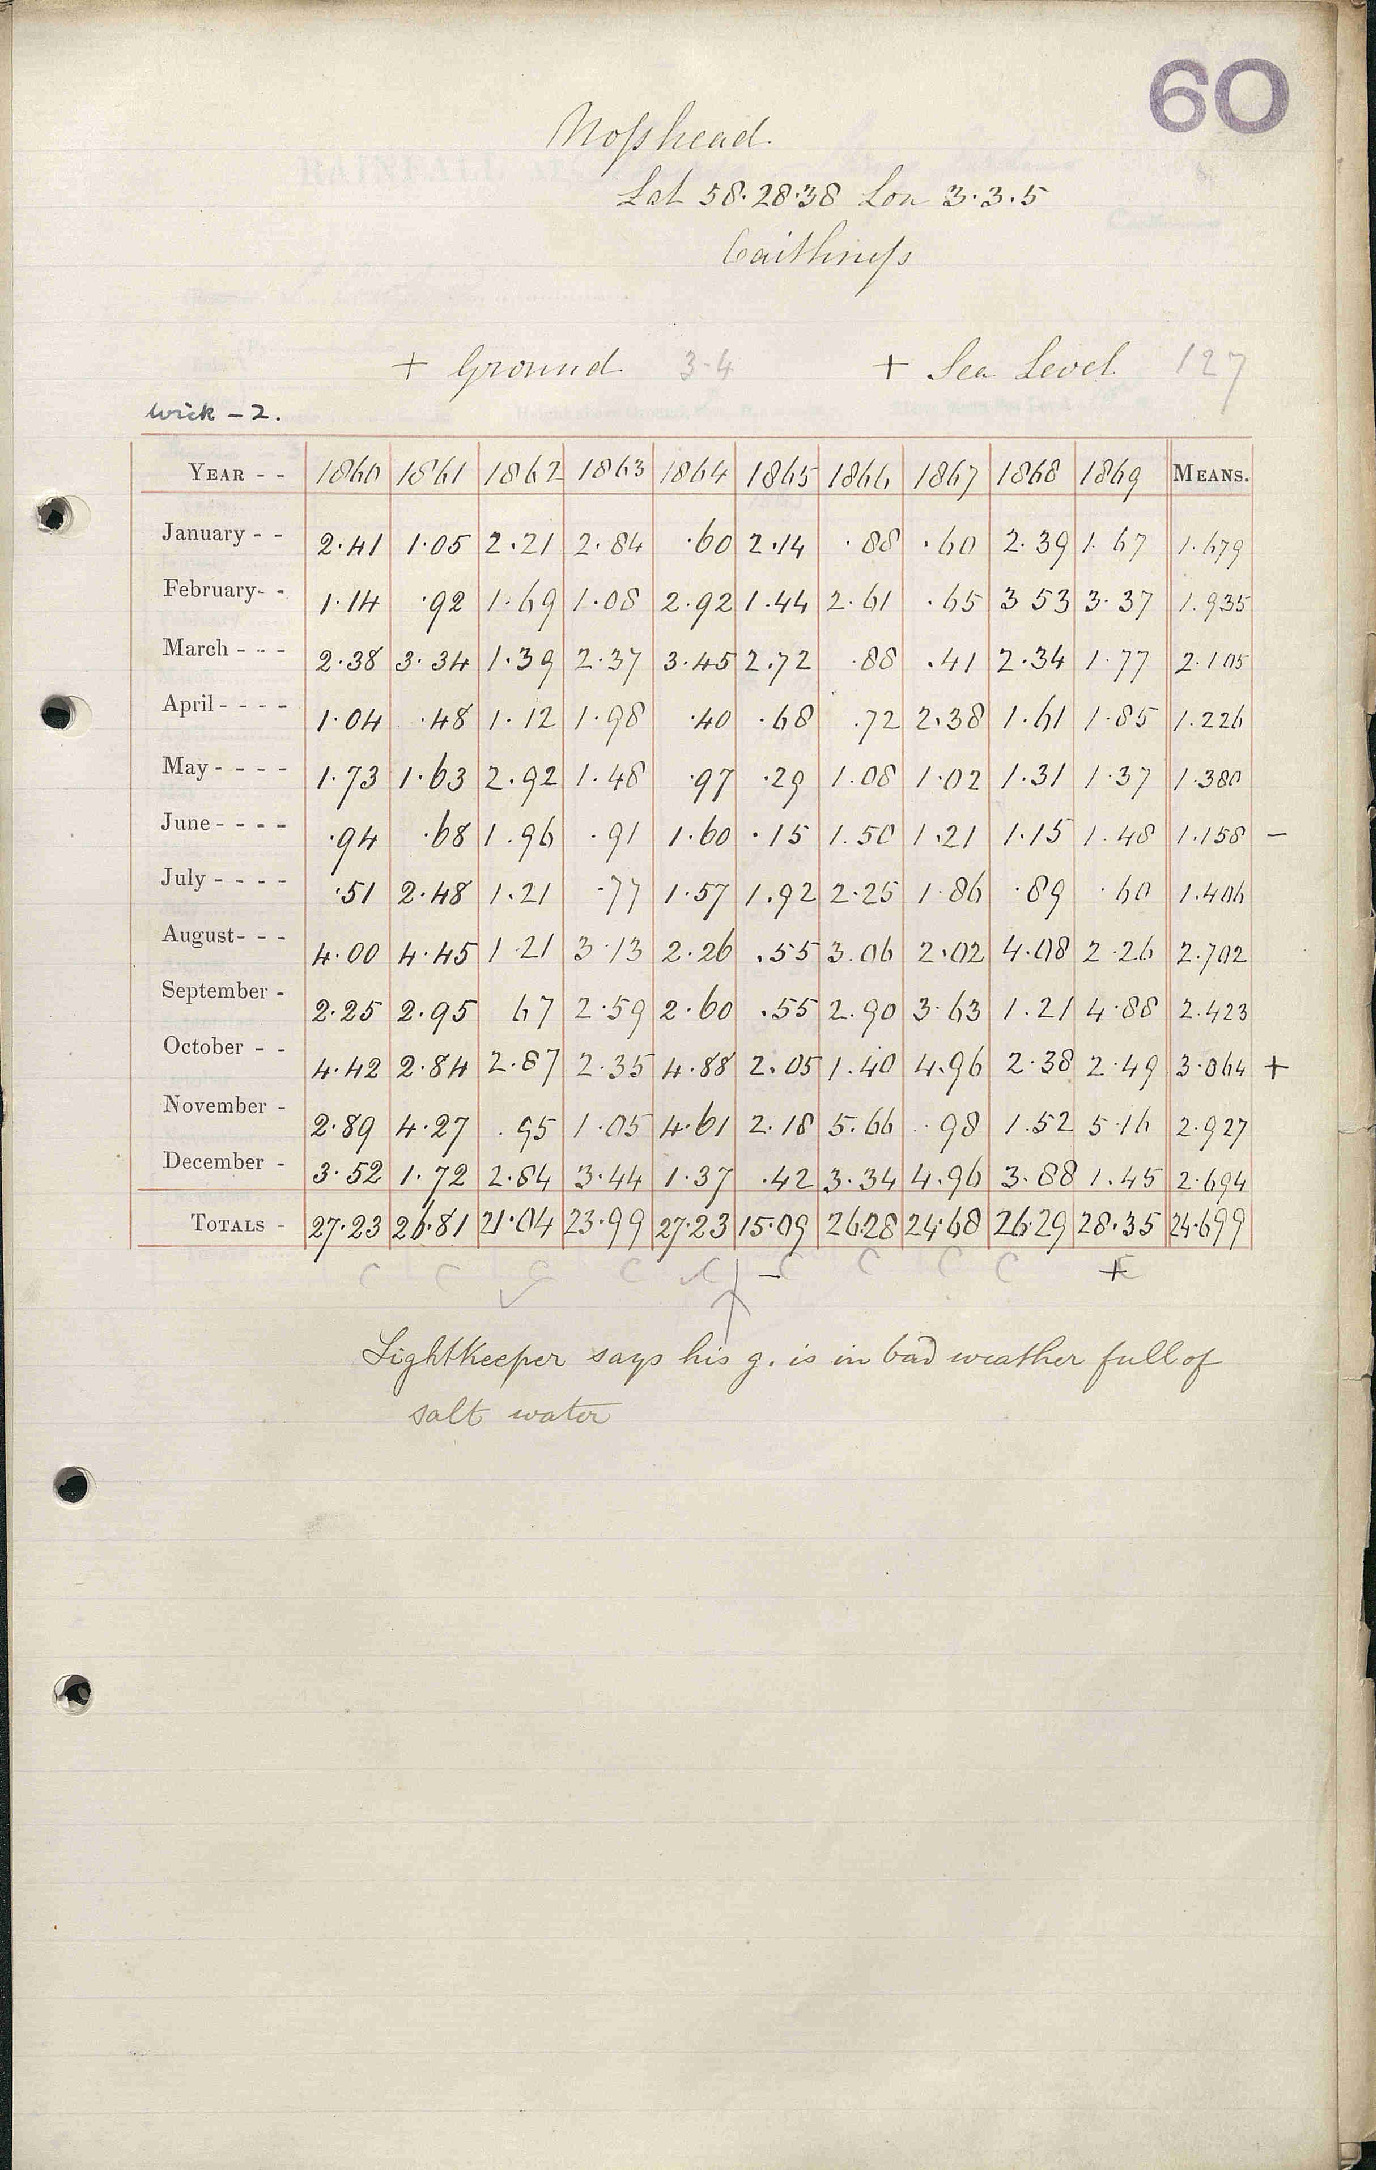 60
Noſshead.
Lat 58.28.38 Lon 3.3.5
Caithneſs
+ Ground 3-4 + Sea Level 127
Wick - 2.
YEAR - - 1860 1861 1862 1863 1864 1865 1866 1867 1868 1869 MEANS.
January - - 2.41 1.05 2.21 2.84 .60 2.14 .88 .60 2.39 1.67 1.679
February- - 1.14 .92 1.69 1.08 2.92 1.44 2.61 .65 3 53 3.37 1.935
March - - - 2.38 3.34 1.39 2.37 3.45 2.72 .88 .41 2.34 1.77 2.105
April - - - - 1.04 .48 1.12 1.98 .40 .68 .72 2.38 1.61 1.85 1.226
May - - - - 1.73 1.63 2.92 1.48 .97 .29 1.08 1.02 1.31 1.37 1.380
June - - - - .94 .68 1.96 .91 1.60 .15 1.50 1.21 1.15 1.48 1.158 -
July - - - - .51 2.48 1.21 .77 1.57 1.92 2.25 1.86 .89 .60 1.406
August- - - 4.00 4.45 1.21 3.13 2.26 .55 3.06 2.02 4.08 2.26 2.702
September - 2.25 2.95 67 2.59 2.60 .55 2.90 3.63 1.21 4.88 2.423
October - - 4.42 2.84 2.87 2.35 4.88 2.05 1.40 4.96 2.38 2.49 3.064 +
November - 2.89 4.27 .95 1.05 4.61 2.18 5.66 .98 1.52 5.16 2.927
December - 3.52 1.72 2.84 3.44 1.37 .42 3.34 4.96 3.88 1.45 2.694
TOTALS - 27.23 26.81 21.04 23.99 27.23 15.09 26.28 24.68 26.29 28.35 24.699
C C C C C - C C C C + C
Lightkeeper says his g. is in bad weather full of
salt water